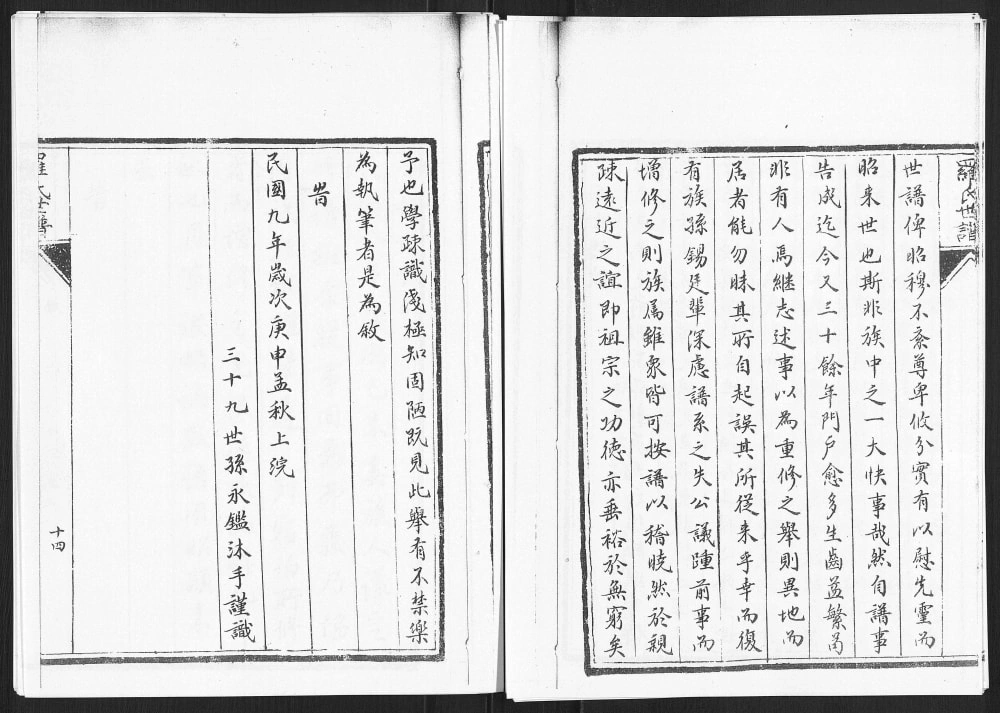 羅氏世譜
世譜俾昭穆不紊尊卑攸分實有以慰先靈而
昭来世也斯非族中之一大快事哉然自譜事
告成迄今又三十餘年門戶愈多生齒益繁茍
非有人焉継志述事以為重修之舉則異地而
居者能勿昧其所自起誤其所從来乎幸而復
有族孫錫廷輩深慮譜系之失公議踵前事而
增修之則族属雖衆皆可按譜以稽曉然於親
疎遠近之誼即祖宗之功德亦垂裕於無窮矣
予也學疎識淺極知固陋既見此舉有不禁樂
為執筆者是為敘
旹
民國九年歲次庚申孟秋上浣
三十九世孫永鑑沐手謹識
羅氏世譜
十四